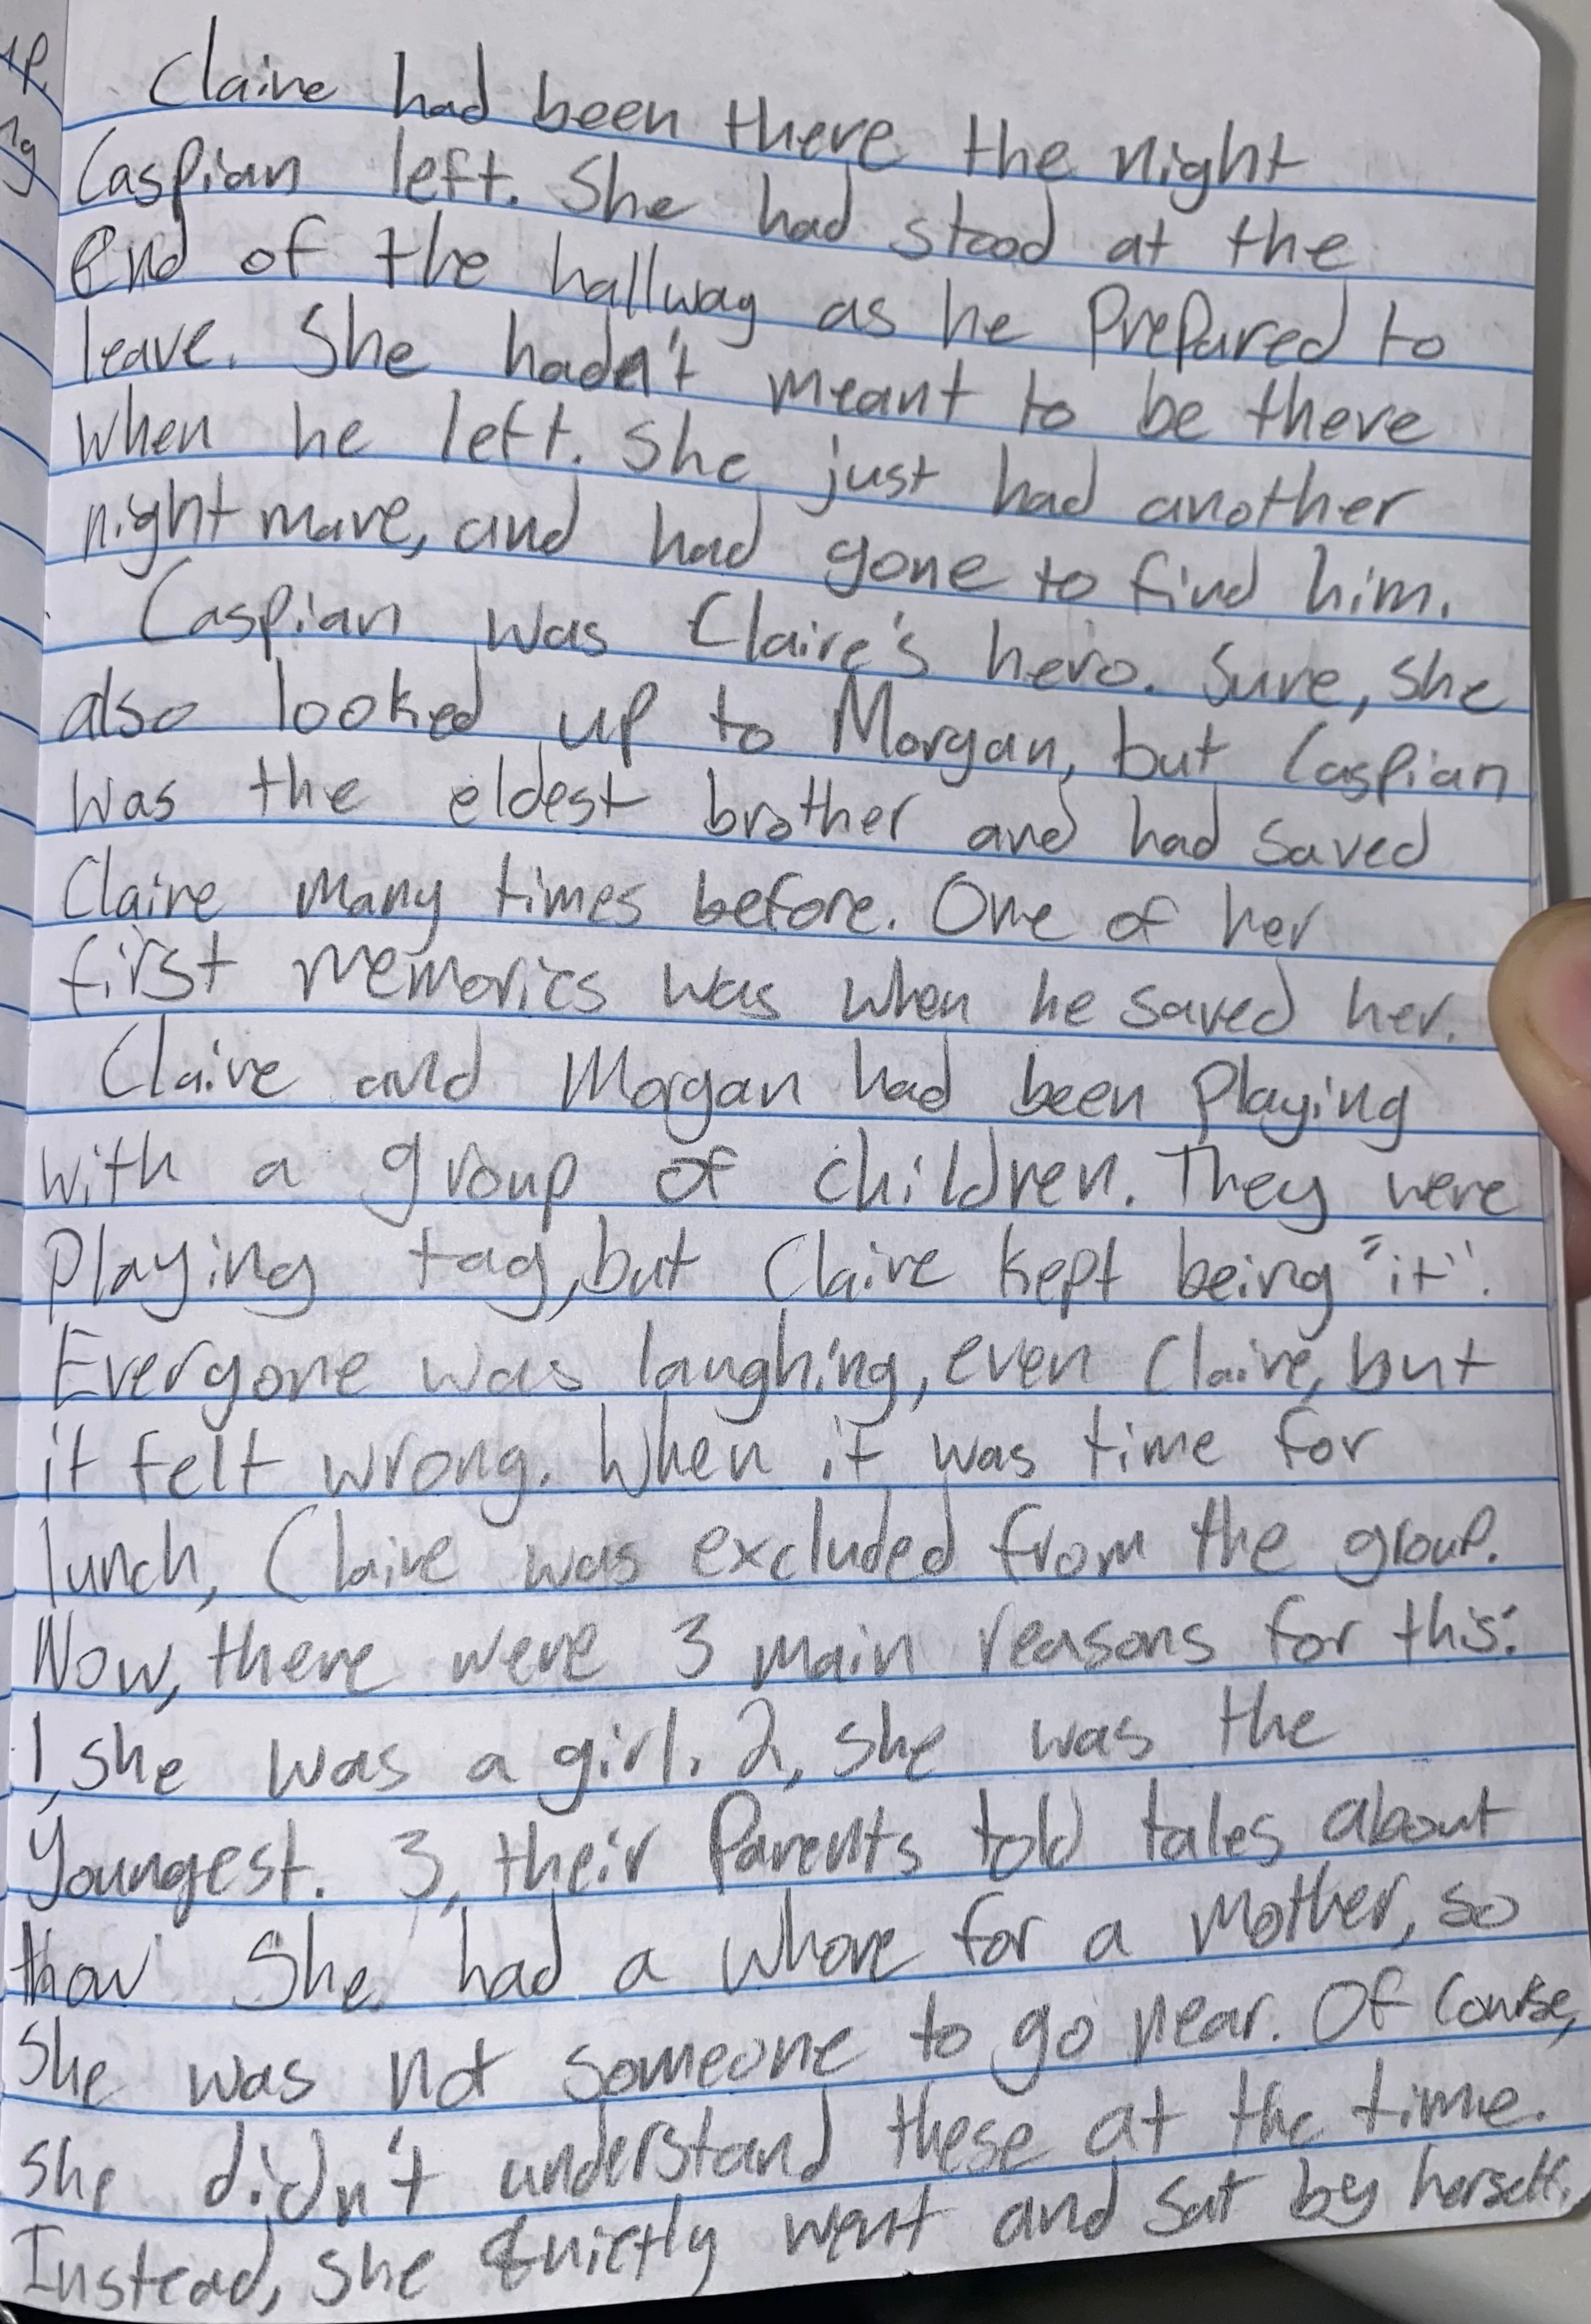 Claire had been there the night
Caspian left. She had stood at the
end of the hallway as he prepared to
leave. She hadn't meant to be there
when he left. She just had another
nightmare, and had gone to find him.
Caspian was Claire's hero. Sure, she
also looked up to Morgan, but Caspian
was the eldest brother and had saved
Claire many times before. One of her
first memories was when he saved her.
Claire and Morgan had been playing
with a group of children. They were
playing tag, but Claire kept being "it".
Everyone was laughing, even Claire, but
it felt wrong. When it was time for
lunch, Claire was excluded from the group.
Now, there were 3 main reasons for this:
1, she was a girl. 2, she was the
youngest. 3, their parents told tales about
how she had a whore for a mother, so
she was not someone to go near. Of course,
she didn't understand these at the time.
Instead, she quietly went and sat by herself.